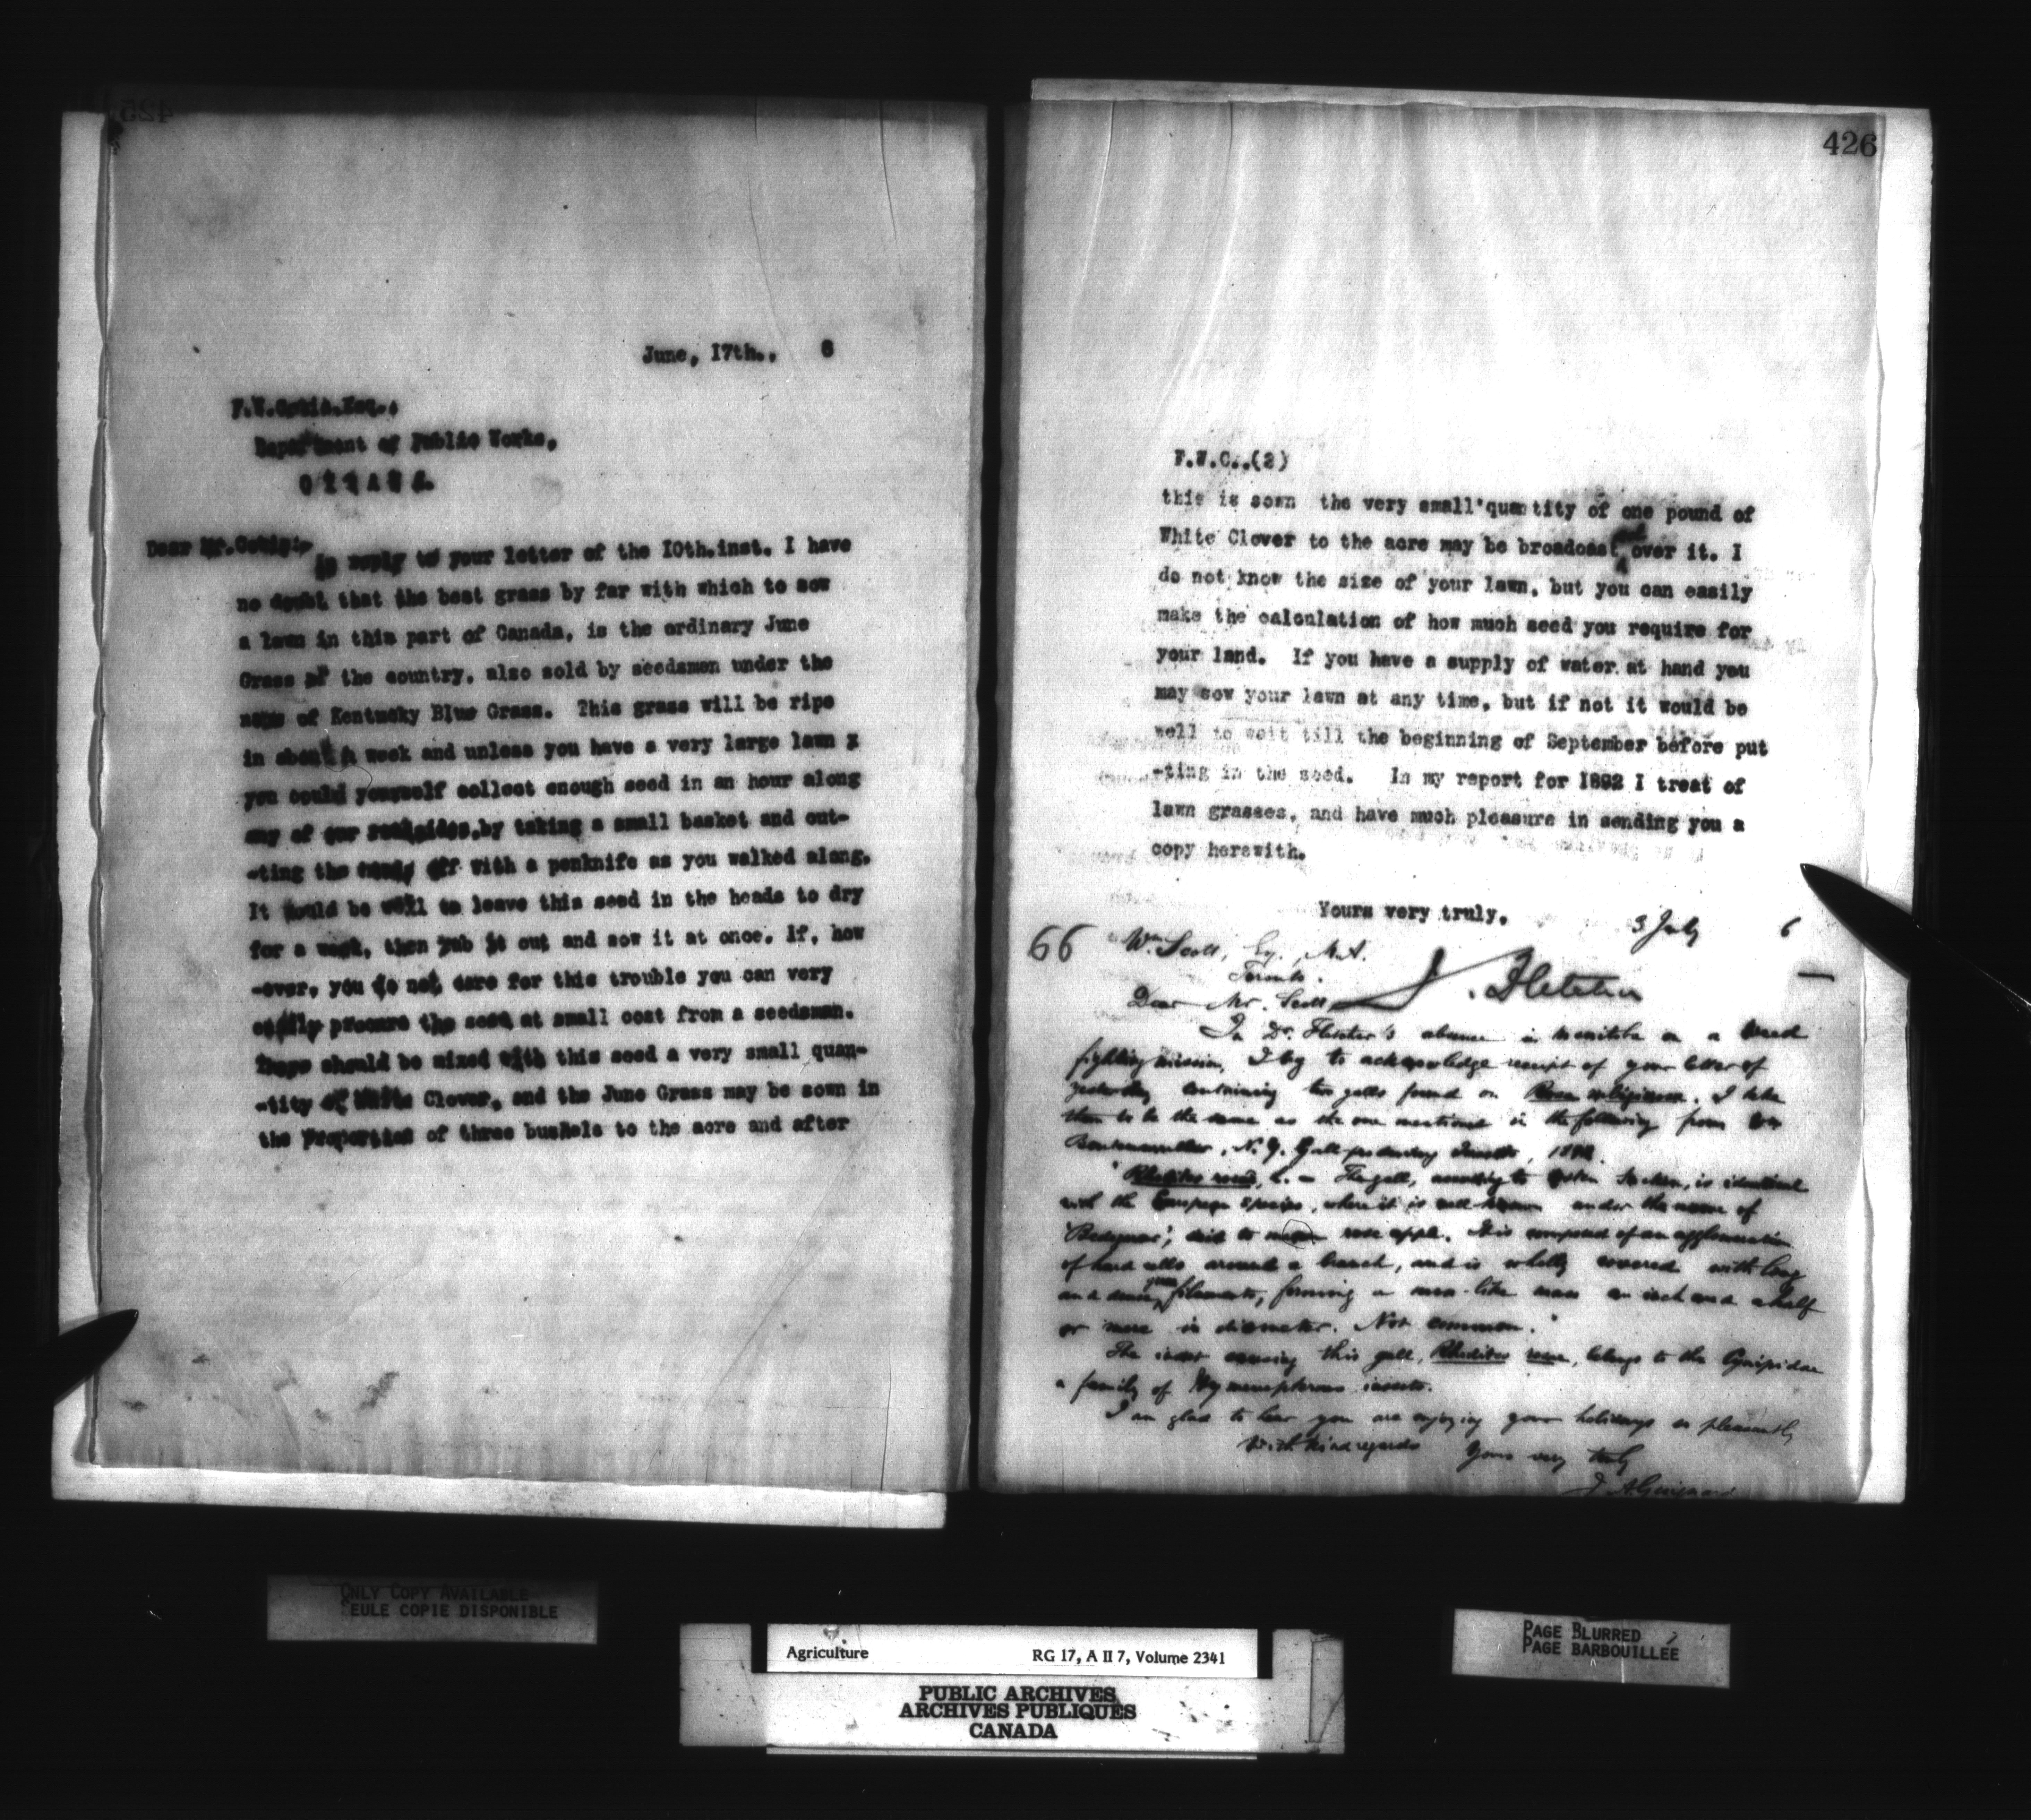 425
June, 17th., 6
F.W. Esq.,
Department of Public Works,
OTTAWA.
Dear Mr.
In reply to your letter of the 10th.inst. I have
no doubt that the best grass by far with which to sow
a lawn in this part of Canada, is the ordinary June
Grass of the country, also sold by seedsmen under the
name of Kentucky Blue Grass. This grass will be ripe
in about a week and unless you have a very large lawn x
you could yourself collect enough seed in an hour along
any of our roadsides, by taking a small basket and cut-
-ting the heads off with a penknife as you walked along.
It would be well to leave this seed in the heads to dry
for a week, then rub it out and sow it at once. If, how
-ever, you do not care for this trouble you can very
easily procure the seed at small cost from a seedsman.
There should be mixed with this seed a very small quan-
-tity of White Clover, and the June Grass may be sown in
the Proportion of three bushels to the acre and after
426
F.W.C..(2)
this is sown the very small quantity of one pound of
White Clover to the acre may be broadcast over it. I
do not know the size of your lawn, but you can easily
make the calculation of how much seed you require for
your land. If you have a supply of water at hand you
may sow your lawn at any time, but if not it would be
well to wait till the beginning of September before put
-ting in the seed. In my report for 1892 I treat of
lawn grasses, and have much pleasure in sending you a
copy herewith.
Yours very truly,
J. Fletcher
66
3 July 6
Wm Scott, Esq., M.A.
Toronto.
Dear Mr. Scott,
In Dr. Fletcher's absence in Manitoba on a weed
fighting mission, I beg to acknowledge receipt of your letter of
yesterday containing two galls found on Rosa. I take
them to be the same as the one mentioned in the following from
N.Y. Gall-producing Insects,
"Rhodites rosae, L. – The gall, according to Osten Sacken, is identical
with the European species, where it is well known under the name of
'Bedeguar', said to mean rose apple. It is composed of an agglomeration
of hard cells around a branch, and is wholly covered with long
and dense green filaments, forming a moss-like mass an inch and a half
or more in diameter. Not common."
The insect causing this gall, Rhodites rosae, belongs to the Cynipidae
a family of Hymenopterous insects.
I am glad to hear you are enjoying your holidays so pleasantly
With kind regards Yours very truly
J. A. Guignard
ONLY COPY AVAILABLE
SEULE COPIE DISPONIBLE
Agriculture RG 17, A II 7, Volume 2341
PUBLIC ARCHIVES
ARCHIVES PUBLIQUES
CANADA
PAGE BLURRED
PAGE BARBOUILLEE